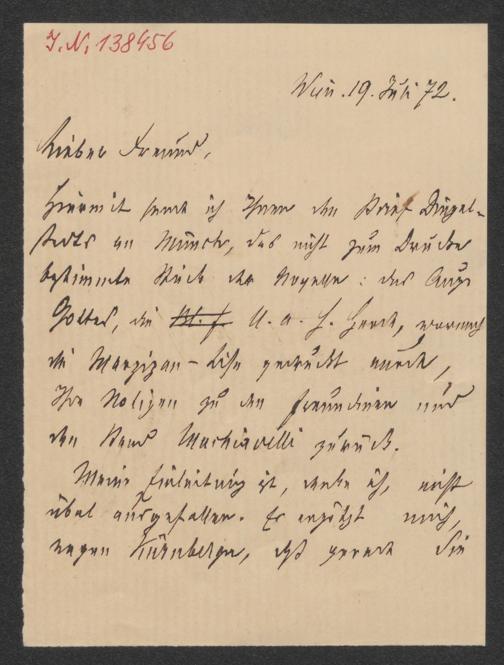 J. N. 138456
Wien. 19. Juli 72.
Lieber Freund,
Hiermit sende ich Ihnen den Brief Dingel-
stedts an Münch, das nicht zum Drucke
bestimmte Stück der Novelle: das Auge
Gottes, die U. a. L. Hand, wornach
die Marzipan-Lise gedruckt wurde,
Ihre Notizen zu den Freundinen und
den Band Machiavelli zurück.
Meine Einleitung ist, denke ich, nicht
übel ausgefallen. Es ergötzt mich,
wegen Kürnberger, daß gerade Sie